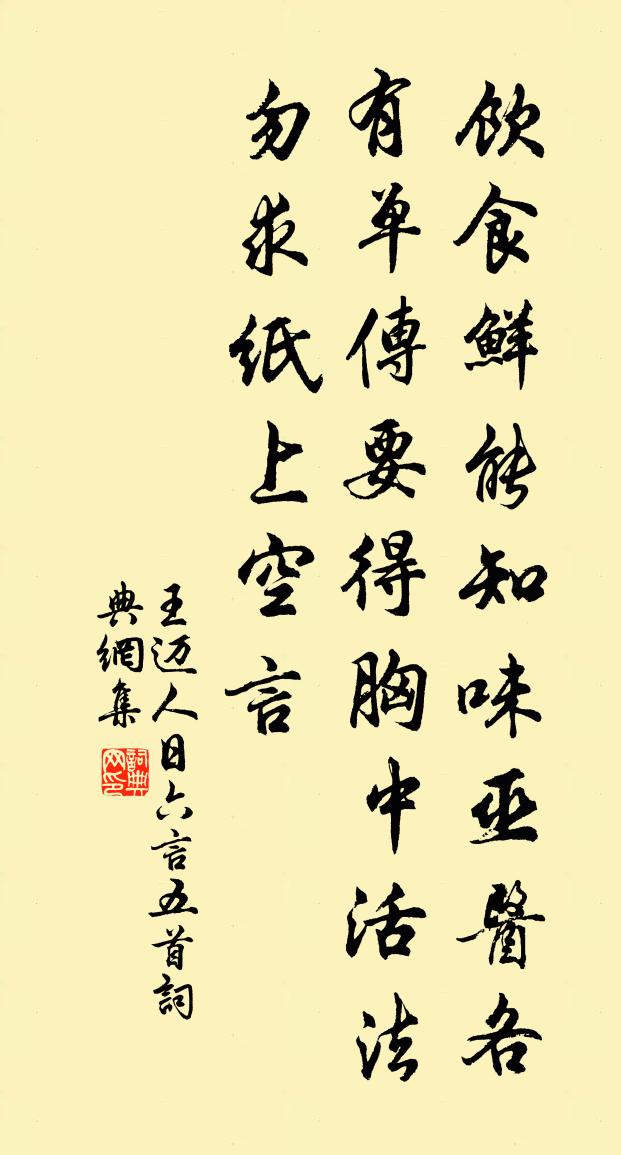 飲食鮮能知味巫醫各
有单傳要得胸中活法
勿求紙上空言
王迈人日六言五首詞
典網集
詞典網印